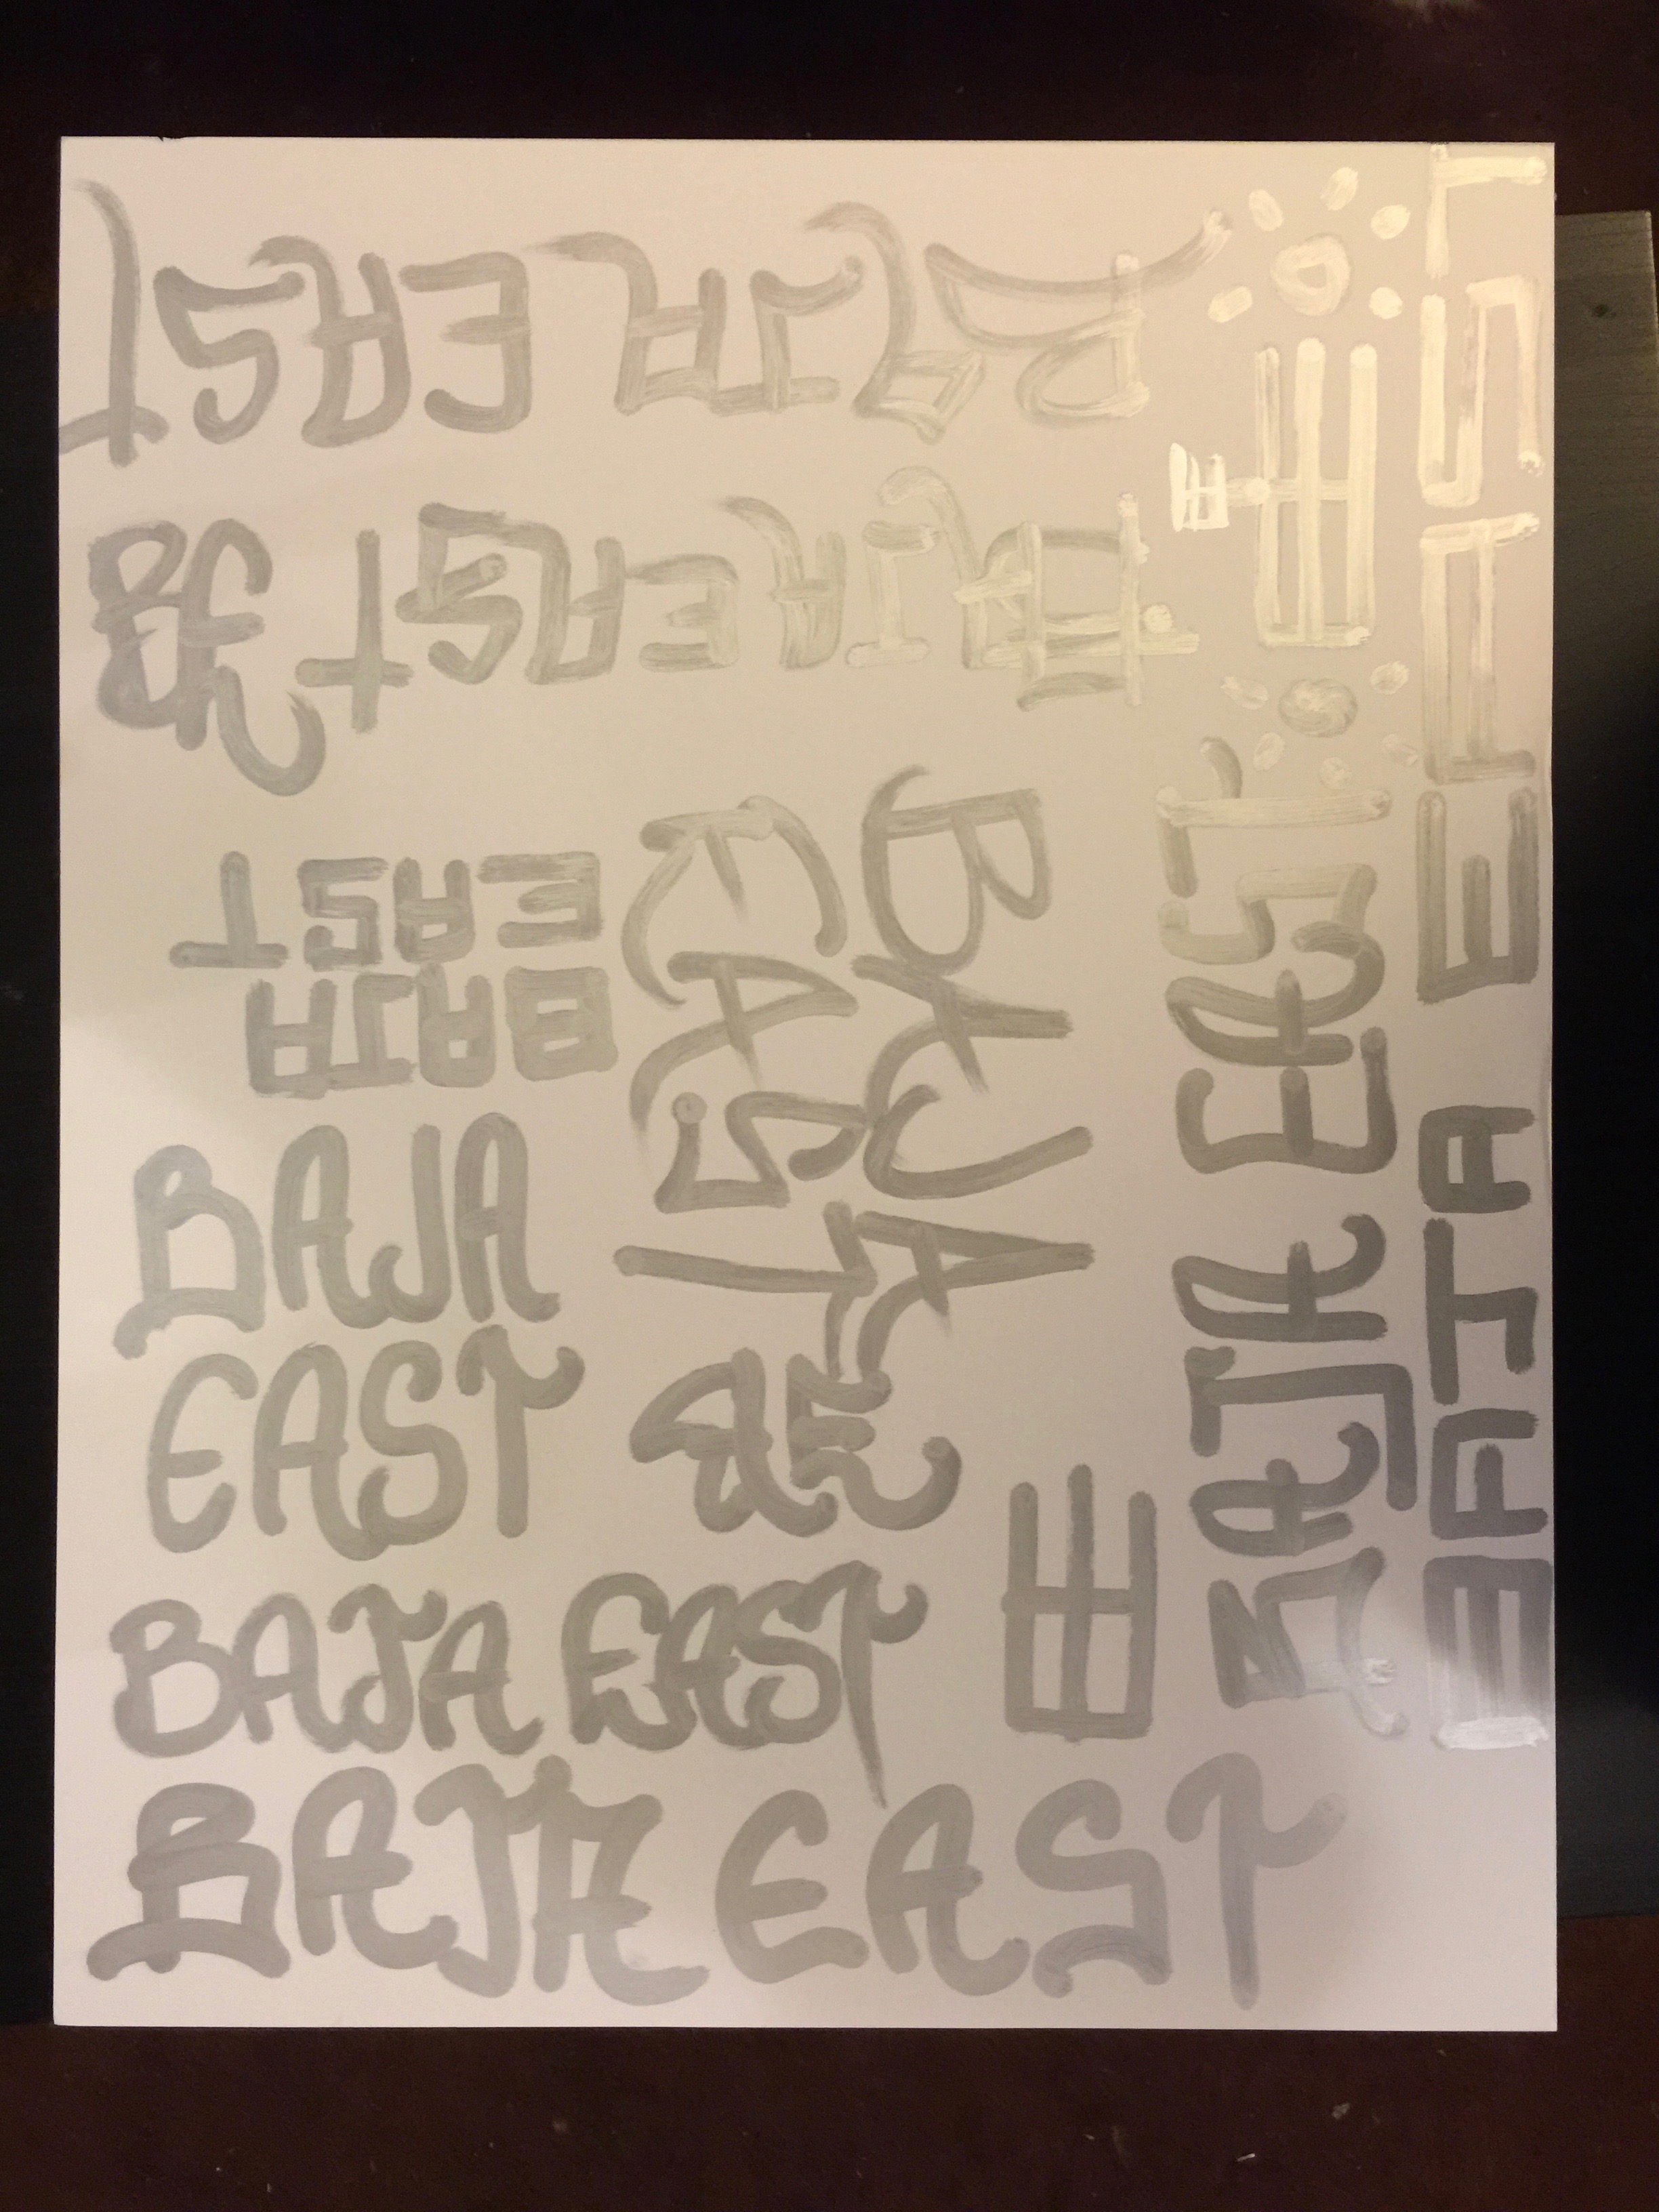 BAJA EAST
BAJA EAST
BE
BAJA
EAST
BAJA
EAST
BAJA
EAST
BE
BAJA EAST
BAJA EAST
BAJA EAST
BAJA EAST